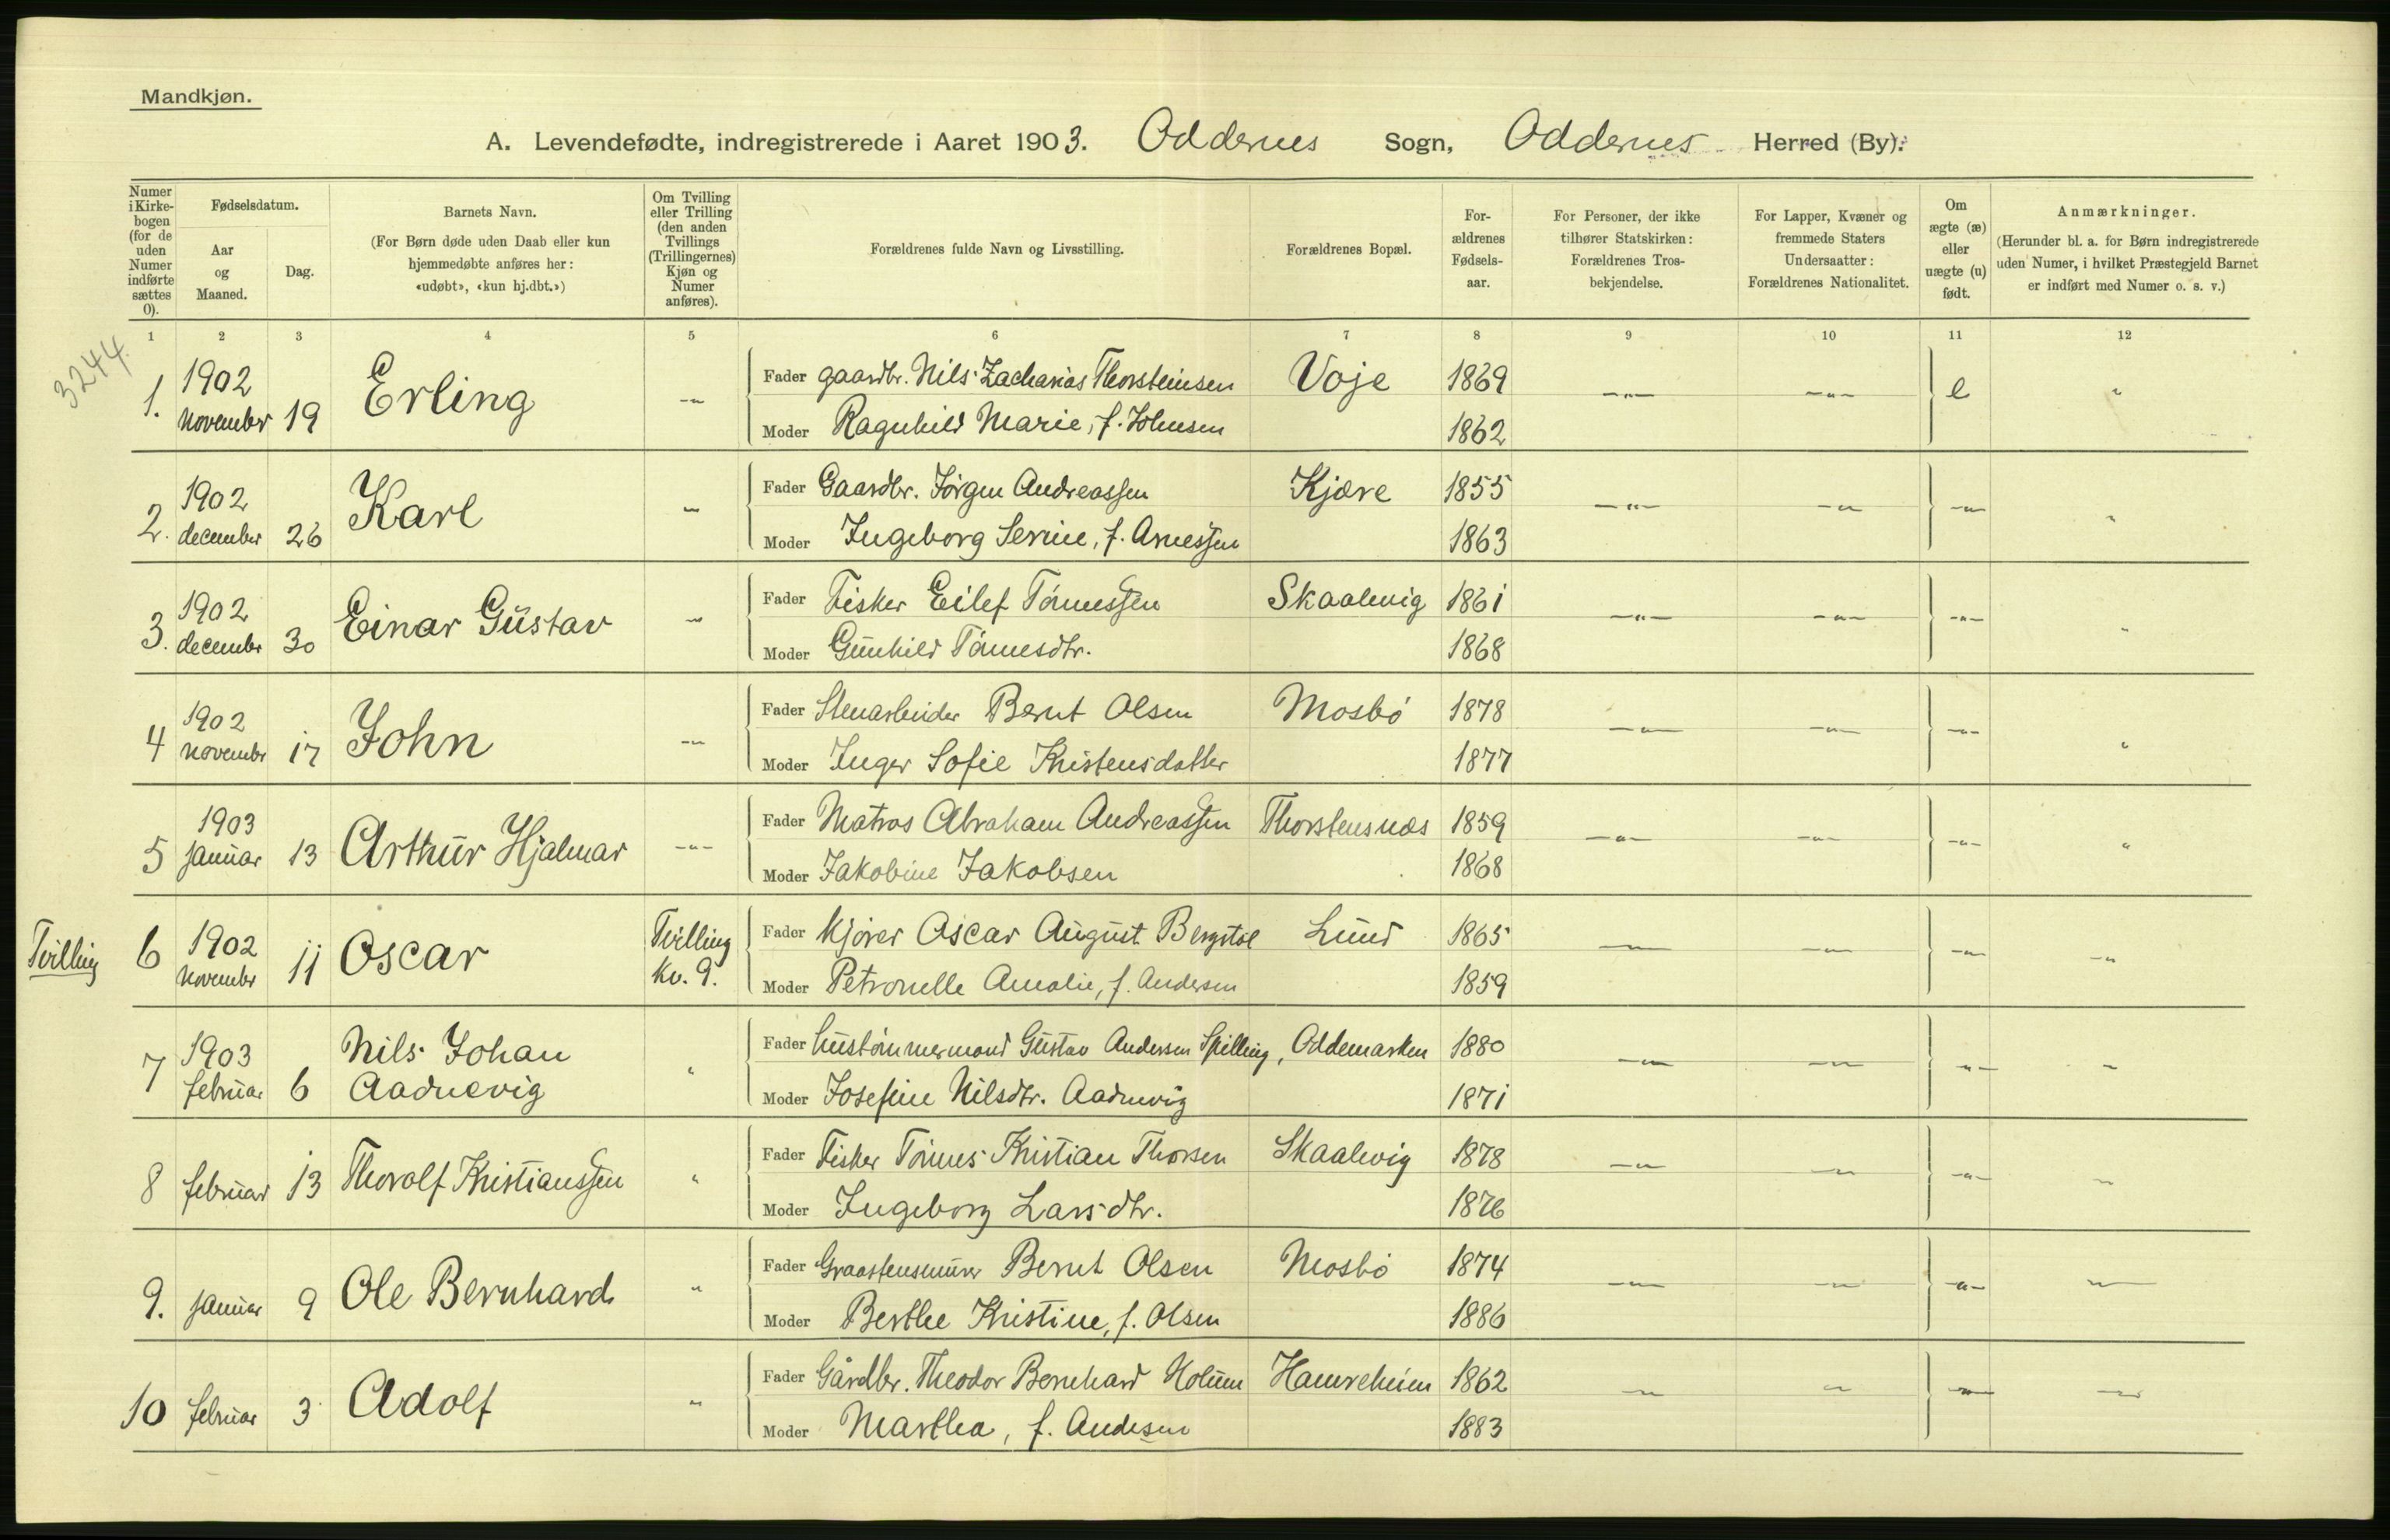 Mandkjøn.
A. Levendefødte, indregistrerede i Aaret 1903. Oddernes Sogn, Oddernes Herred (By).
Numer i Kirke- bogen (for de uden Numer indførte sættes 0).
Fødselsdatum.
Aar og Maaned.
Dag.
Barnets Navn.
(For Børn døde uden Daab eller kun hjemmedøbte anføres her: «udøbt», «kun hj.dbt.»)
Om Tvilling eller Trilling (den anden Tvillings (Trillingernes) Kjøn og Numer anføres).
Forældrenes fulde Navn og Livsstilling.
Forældrenes Bopæl.
For- ældrenes Fødsels- aar.
For Personer, der ikke tilhører Statskirken: Forældrenes Tros- bekjendelse.
For Lapper, Kvæner og fremmede Staters Undersaatter: Forældrenes Nationalitet.
Om ægte (æ) eller uægte (u) født.
Anmærkninger.
(Herunder bl. a. for Børn indregistrerede uden Numer, i hvilket Præstegjeld Barnet er indført med Numer o. s. v.)
1 2 3 4 5 6 7 8 9 10 11 12
3244
1. 1902 november 19 Erling -"- Fader gaardbr. Nils Zacharias Thorsteinsen Voje 1869 -"- -"- e "
Moder Ragnhild Marie, f. Johnsen 1862
2. 1902 december 26 Karl " Fader Gaardbr. Jørgen Andreassen Kjære 1855 -"- -"- -"- "
Moder Ingeborg Serine, f. Arnessen 1863
3. 1902 december 30 Einar Gustav " Fader Fisker Eilef Tønnessen Skaalevig 1861 -"- -"- -"- "
Moder Gunhild Tønnesdtr. 1868
4 1902 novembr 17 John -"- Fader Stenarbeider Bernt Olsen Mosbø 1878 -"- -"- -"- "
Moder Inger Sofie Kristensdatter 1877
5 1903 januar 13 Arthur Hjalmar -"- Fader Matros Abraham Andreassen Thorstensnæs 1859 -"- -"- -"- "
Moder Jakobine Jakobsen 1868
Tvilling 6 1902 novembr 11 Oscar Tvilling Kv. 9. Fader Kjører Oscar August Bergstøl Lund 1865 -"- -"- -"- -"
Moder Petronelle Amalie, f. Andersen 1859
7 1903 februar 6 Nils Johan Aadnevig " Fader hustømmermand Gustav Andersen Spilling, Oddemarken 1880 -"- -"- -"- "
Moder Josefine Nilsdtr. Aadnevig 1871
8 februar 13 Thorolf Kristianssen " Fader Fisker Tønnes Kristian Thorsen Skaalevig 1878 -"- -"- -"- "
Moder Ingeborg Larsdtr. 1876
9. januar 9 Ole Bernhard " Fader Graastensmurer Bernt Olsen Mosbø 1874 -"- -"- -"- -"-
Moder Berthe Kristine, f. Olsen 1886
10 februar 3 Adolf " Fader Gårdbr. Theodor Bernhard Holum Hamreheien 1862 -"- " -"- -"-
Moder Marthea, f. Andesen 1883